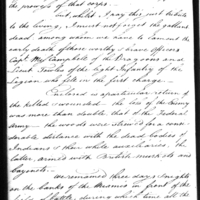 the prowess of that corps.
but, whilst I pay this just tribute
to the living, I must not forget the gallant
dead, among whom we have to lament the
early death of those worthy & brave Officers
Capt. Mc. Campbell of the Dragoons and
Lieut Towles of the Light Infantry of the
Legion who fell in the first charge.
Enclosed is a particular return of
the killed & wounded. The loss of the Enemy
was more than double that of the Federal
Army - the woods were strewed for a consi-
derable distance with the dead bodies of
Indians & their white auxiliaries. The
latter armed with British muskets and
Bayonets.
We remained three days & nights
on the banks of the Miamis in front of the
field of Battle, during which time all the